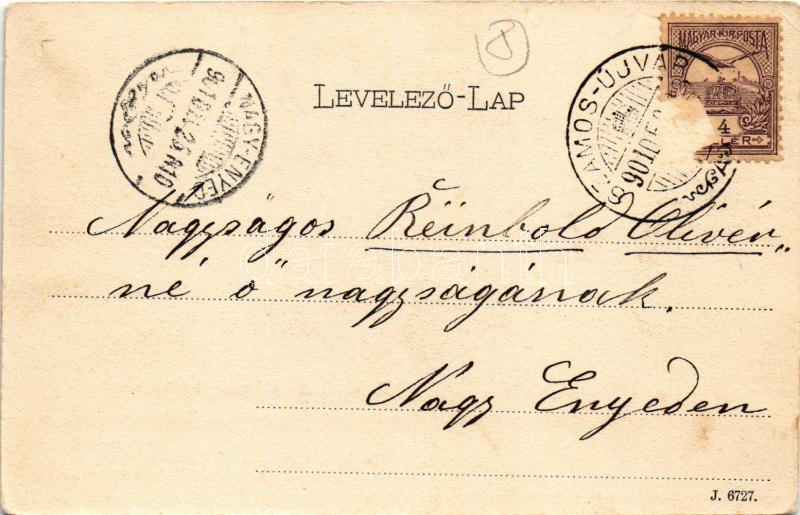 MAGYAR·KIR·POSTA
4
SZAMOS-ÚJVÁR
NAGY-ENYED
LEVELEZŐ-LAP
Nagyságos Reinbold Olivér„
né ő" nagyságának.
Nagy Enyeden
J. 6727.